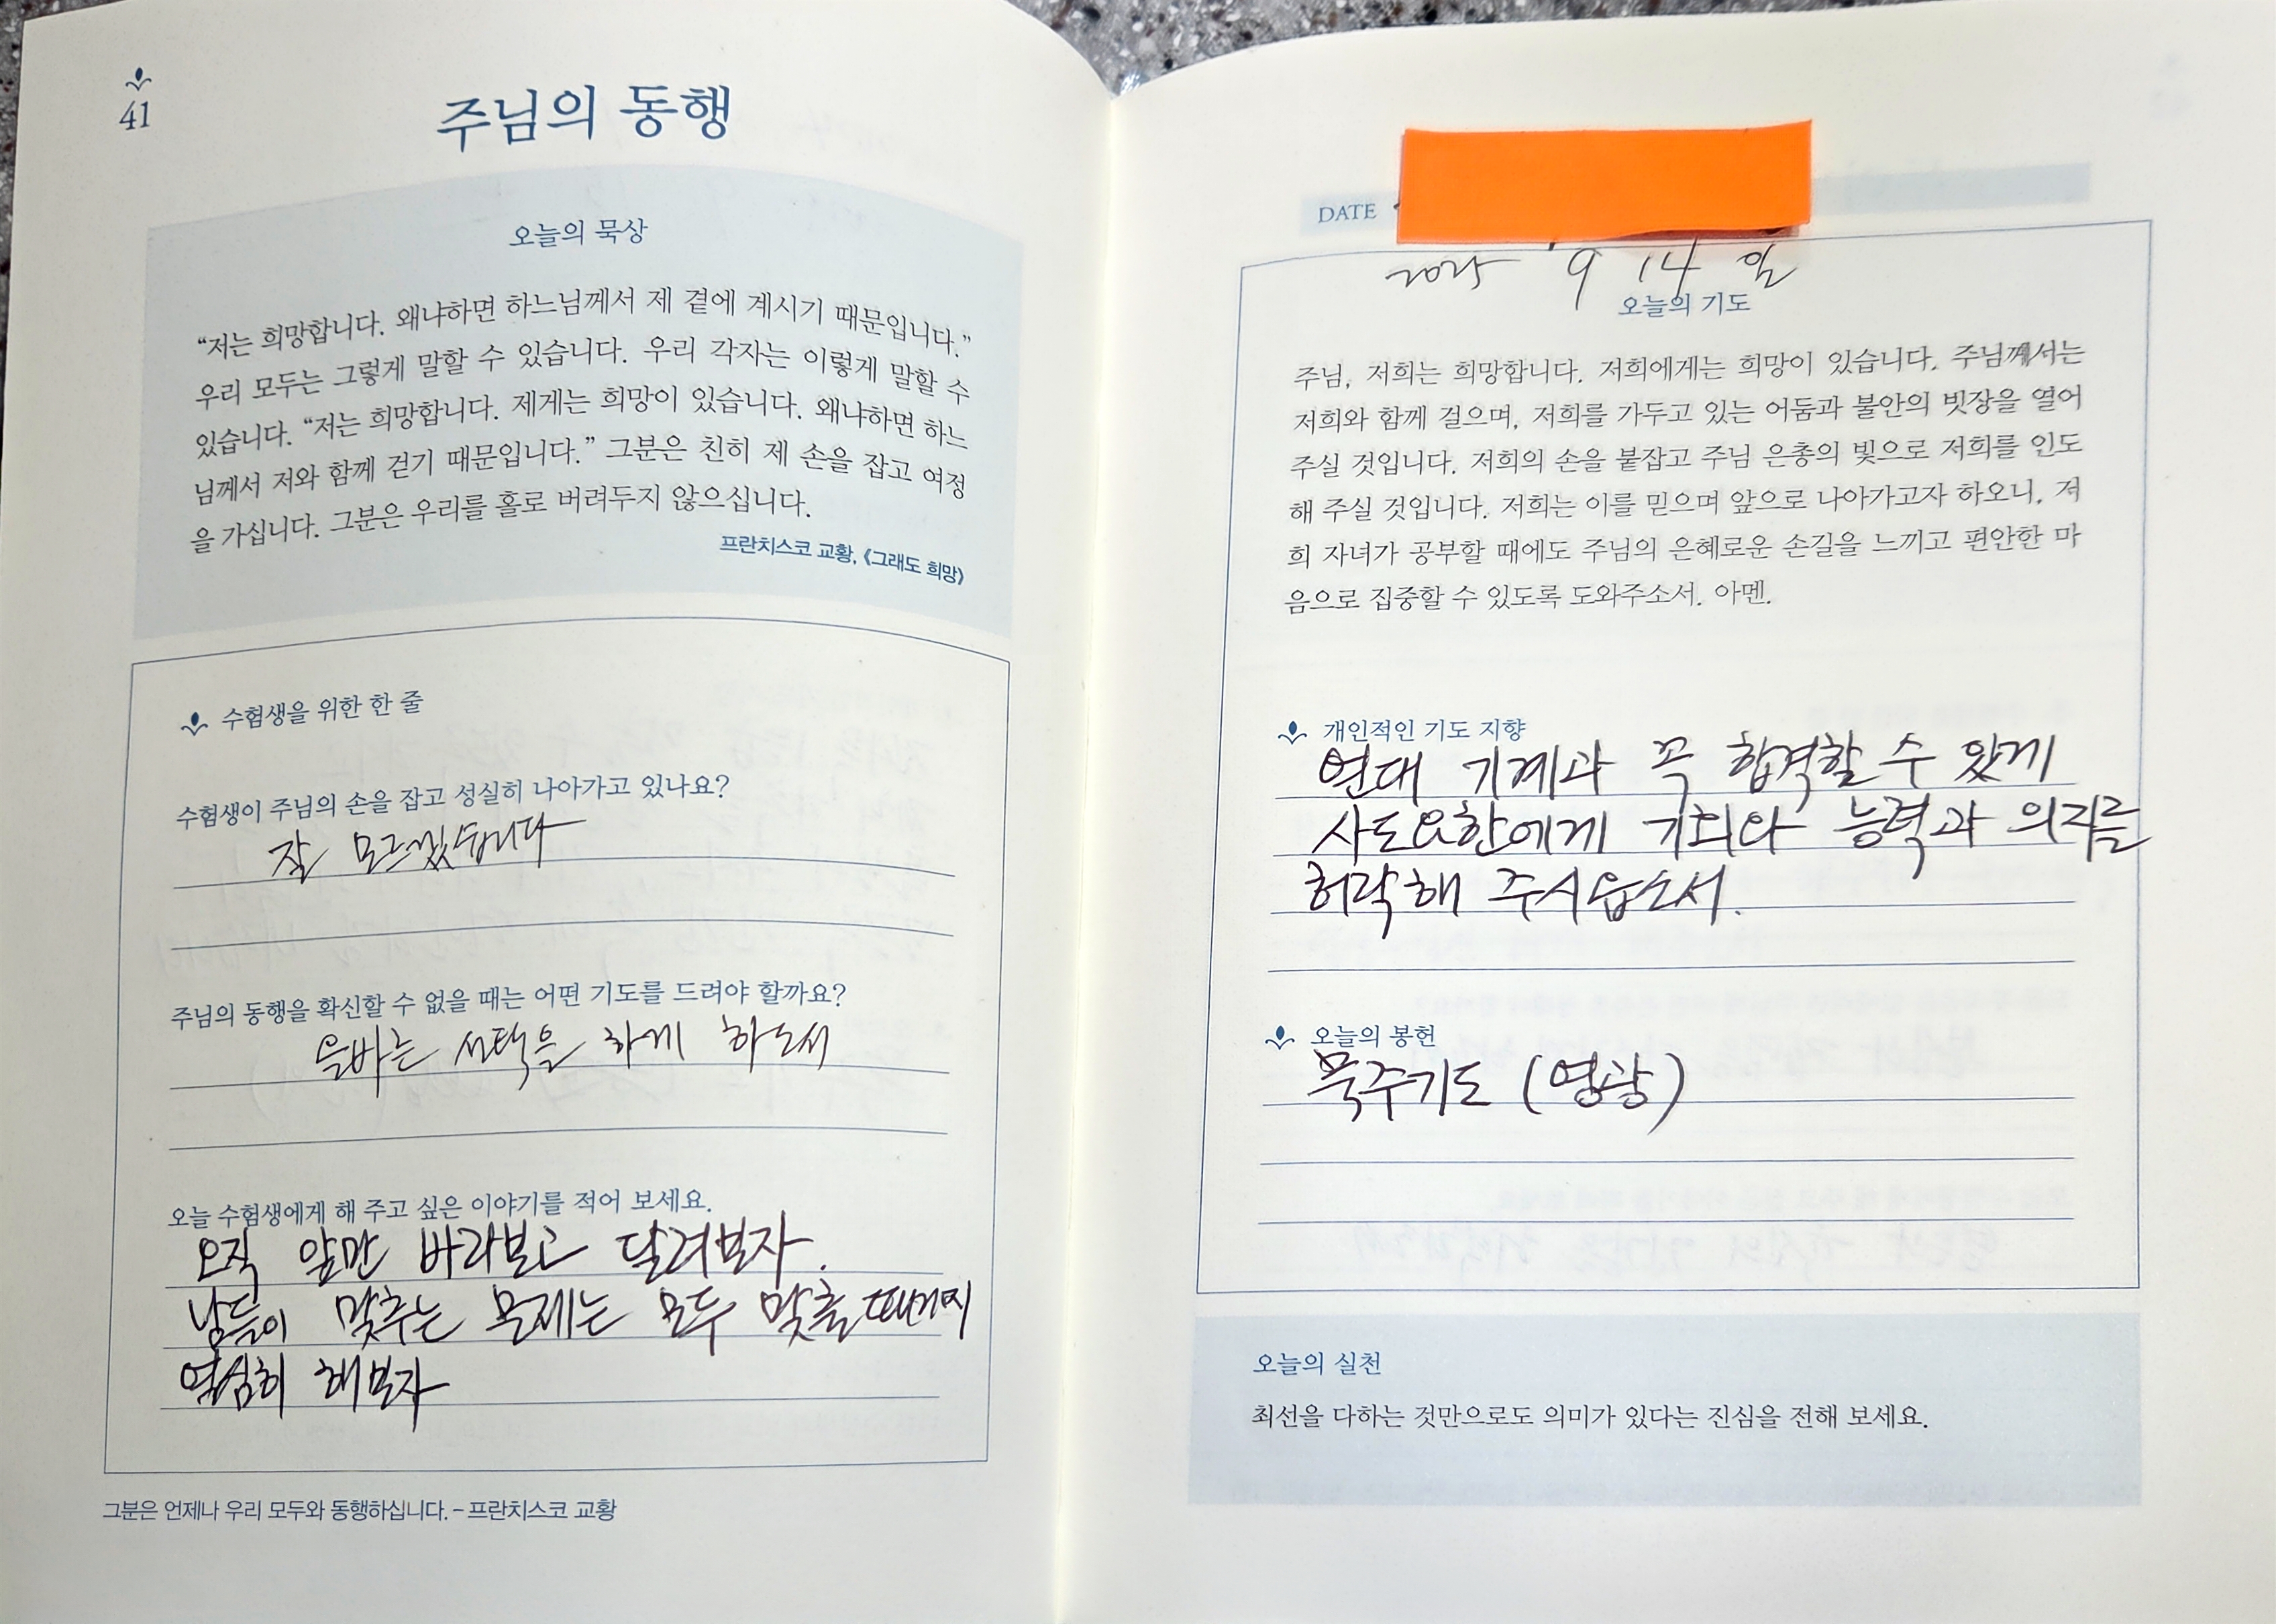 41
주님의 동행
오늘의 묵상
“저는 희망합니다. 왜냐하면 하느님께서 제 곁에 계시기 때문입니다.”
우리 모두는 그렇게 말할 수 있습니다. 우리 각자는 이렇게 말할 수
있습니다. “저는 희망합니다. 제게는 희망이 있습니다. 왜냐하면 하느
님께서 저와 함께 걷기 때문입니다.” 그분은 친히 제 손을 잡고 여정
을 가십니다. 그분은 우리를 홀로 버려두지 않으십니다.
프란치스코 교황, 《그래도 희망》
수험생을 위한 한 줄
수험생이 주님의 손을 잡고 성실히 나아가고 있나요?
잘 모르겠습니다
주님의 동행을 확신할 수 없을 때는 어떤 기도를 드려야 할까요?
올바른 선택을 하게 하소서
오늘 수험생에게 해 주고 싶은 이야기를 적어 보세요.
오직 앞만 바라보고 달려보자.
남들이 맞추는 문제는 모두 맞출때까지
열심히 해보자
그분은 언제나 우리 모두와 동행하십니다. – 프란치스코 교황
DATE
2025 9 14 일
오늘의 기도
주님, 저희는 희망합니다. 저희에게는 희망이 있습니다. 주님께서는
저희와 함께 걸으며, 저희를 가두고 있는 어둠과 불안의 빗장을 열어
주실 것입니다. 저희의 손을 붙잡고 주님 은총의 빛으로 저희를 인도
해 주실 것입니다. 저희는 이를 믿으며 앞으로 나아가고자 하오니, 저
희 자녀가 공부할 때에도 주님의 은혜로운 손길을 느끼고 편안한 마
음으로 집중할 수 있도록 도와주소서. 아멘.
개인적인 기도 지향
연대 기계과 꼭 합격할 수 있게
사도요한에게 기회와 능력과 의지를
허락해 주시옵소서.
오늘의 봉헌
묵주기도 (영광)
오늘의 실천
최선을 다하는 것만으로도 의미가 있다는 진심을 전해 보세요.